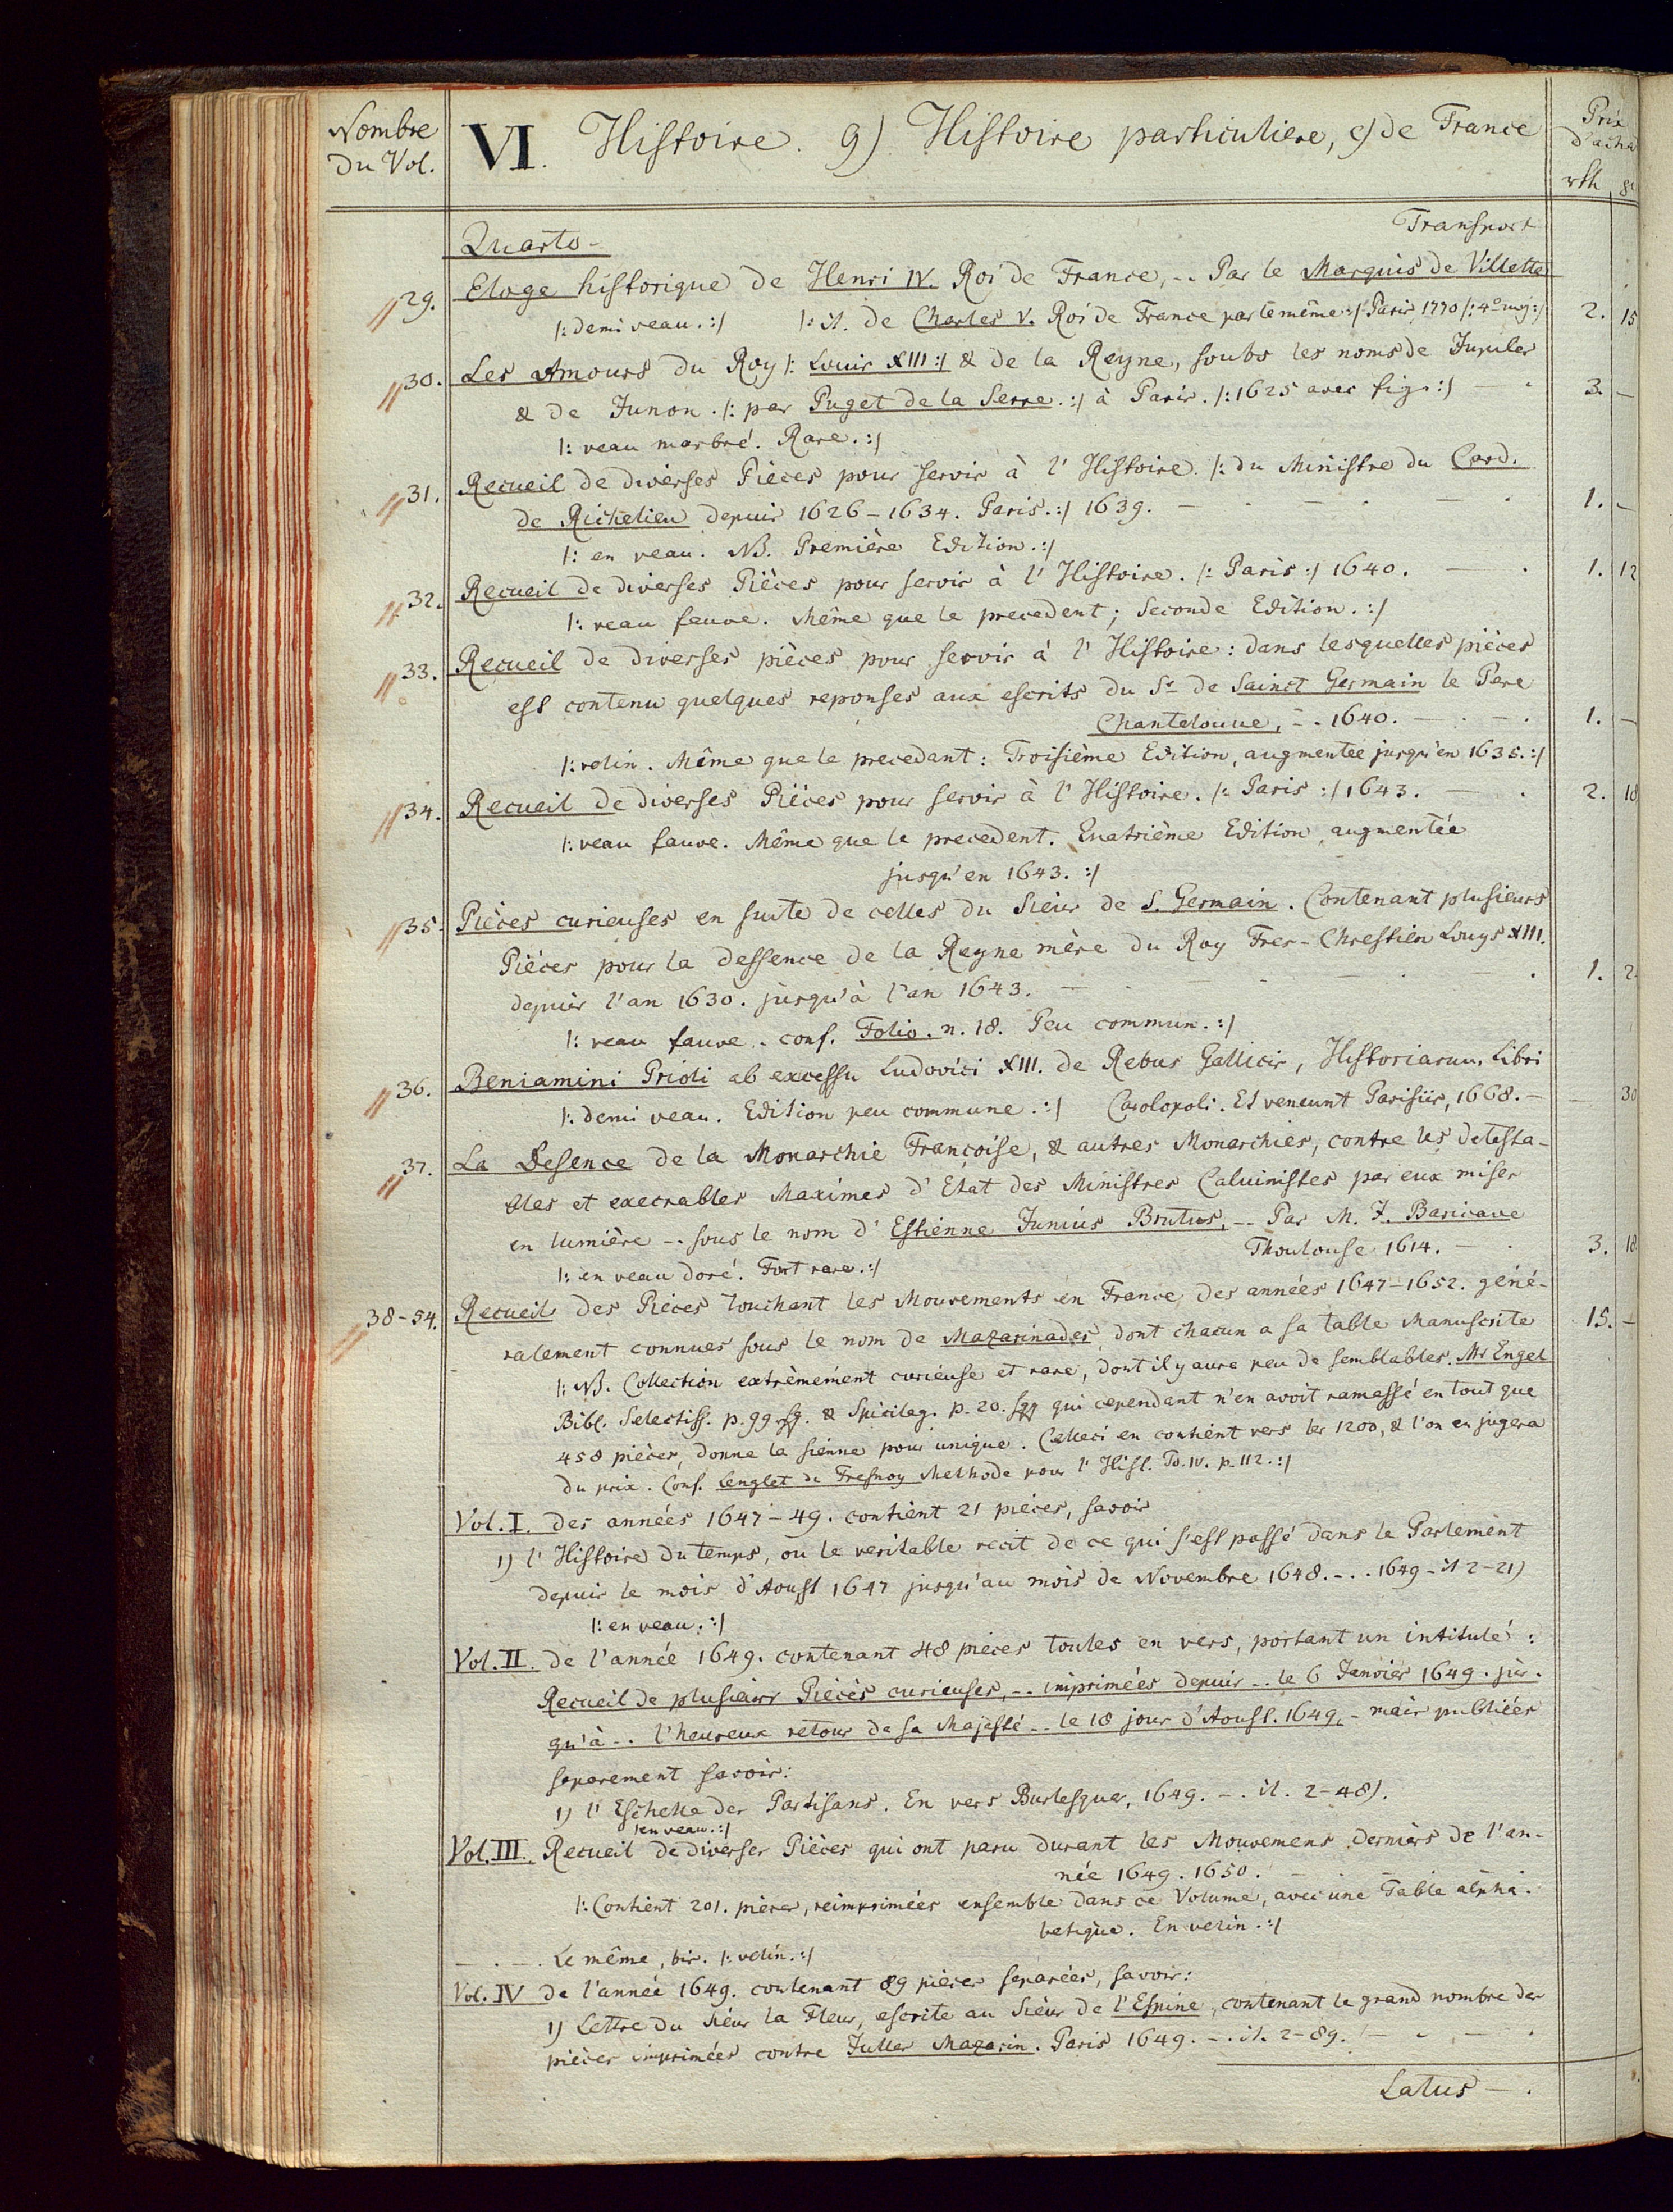 Nombre
du Vol.
VI. Histoire. 9) Histoire particuliere, c) de France
Prix
d'acha
rth gr
Transport
Quarto -
29. Eloge historique de Henri IV. Roi de France, -. Par le Marquis de Villette
/: demi veau. :/ /: it. de Charles V. Roi de France par le même :/ Paris, 1770 /: 4º maj :/ 2. 15
30. Les Amours du Roy /: Louis XIII :/ & de la Reyne, soubs les noms de Jupiter
& de Junon. /: par Puget de la Serre. :/ à Paris. /: 1625 avec fig. :/ — . 3. —
/: veau marbré. Rare. :/
31. Recueil de diverses Pièces pour servir à l'Histoire. /: du Ministre du Card.
de Richelieu depuis 1626-1634. Paris. :/ 1639. — . — . — . 1. —
/: en veau. NB. Première Edition. :/
32. Recueil de diverses Pièces pour servir à l'Histoire. /: Paris :/ 1640. — . 1. 12
/: veau fauve. Même que le precedent; Seconde Edition. :/
33. Recueil de diverses pièces pour servir à l'Histoire: dans lesquelles pièces
est contenu quelques reponses aux escrits du Sr de Sainct Germain le Pere
Chantelouue, -. 1640. — . — . 1. —
/: velin. Même que le precedant: Troisième Edition, augmentée jusqu'en 1635. :/
34. Recueil de diverses Pièces pour servir à l'Histoire. /: Paris :/ 1643. — . 2. 18
/: veau fauve. Même que le precedent. Quatrième Edition, augmentée
jusqu'en 1643. :/
35. Pièces curieuses en suite de celles du Sieur de S. Germain. Contenant plusieurs
Pièces pour la deffence de la Reyne mère du Roy Tres-Chrestien Louys XIII.
depuis l'an 1630. jusqu'à l'an 1643. — . — . — . — . 1. 2.
/: veau fauve. conf. Folio. n. 18. Peu commun. :/
36. Beniamini Prioli ab excessu Ludovici XIII. de Rebus Gallicis, Historiarum Libri
/: demi veau. Edition peu commune. :/ Carolopoli. Et veneunt Parisiis, 1668. — — 30
37. La Defence de la Monarchie Françoise, & autres Monarchies, contre les detesta-
bles et execrables Maximes d'Etat des Ministres Caluinistes par eux mises
en lumière -. sous le nom d'Estienne Junius Brutus, -. Par M. J. Baricaue
/: en veau doré. Fort rare. :/ Thoulouse 1614. — . 3. 18
38-54. Recueil des Pièces touchant les Mouvements en France, des années 1647-1652. géné-
ralement connues sous le nom de Mazarinades, dont chacun a sa table Manuscrite 15. —
/: NB. Collection extrèmément curieuse et rare, dont il y aura peu de semblables. Mr Engel
Bibl. Selectiss. p. 99. sq. & Spicileg. p. 20. sqq qui cependant n'en avoit ramassé en tout que
458 pièces, donne la sienne pour unique. Celleci en contient vers les 1200, & l'on en jugera
du prix. Conf. Lenglet du Fresnoy Methode pour l'Hist. To. IV. p. 112. :/
Vol. I. des années 1647-49. contient 21 pièces, savoir
1) l'Histoire du temps, ou le veritable recit de ce qui s'est passé dans le Parlement
depuis le mois d'Aoust 1647 jusqu'au mois de Novembre 1648. -. . 1649 - it 2-21)
/: en veau. :/
Vol. II. de l'année 1649. contenant 48 pieces toutes en vers, portant un intitulé:
Recueil de plusieurs Pièces curieuses, -. imprimées depuis -. le 6 Janvier 1649. jus-
qu'à -. l'heureux retour de sa Majesté -. le 18 jour d'Aoust. 1649, - mais publiées
separement savoir:
1) l'Eschelle des Partisans. En vers Burlesques, 1649. -. it. 2-48).
/: en veau. :/
Vol. III. Recueil de diverses Pièces qui ont paru durant les Mouvemens derniers de l'an-
née 1649. 1650. — .
/: Contient 201. pièces, reimprimées ensemble dans ce Volume, avec une Table alpha-
betique. En velin. :/
— . — . Le même, bis. /: velin. :/
Vol. IV de l'année 1649. contenant 89 pièces separées, savoir:
1) Lettre du Sieur la Fleur, escrite au Sieur de l'Espine, contenant le grand nombre des
pièces imprimées contre Jules Mazarin. Paris 1649. -. it. 2-89. — . — .
Latus — .